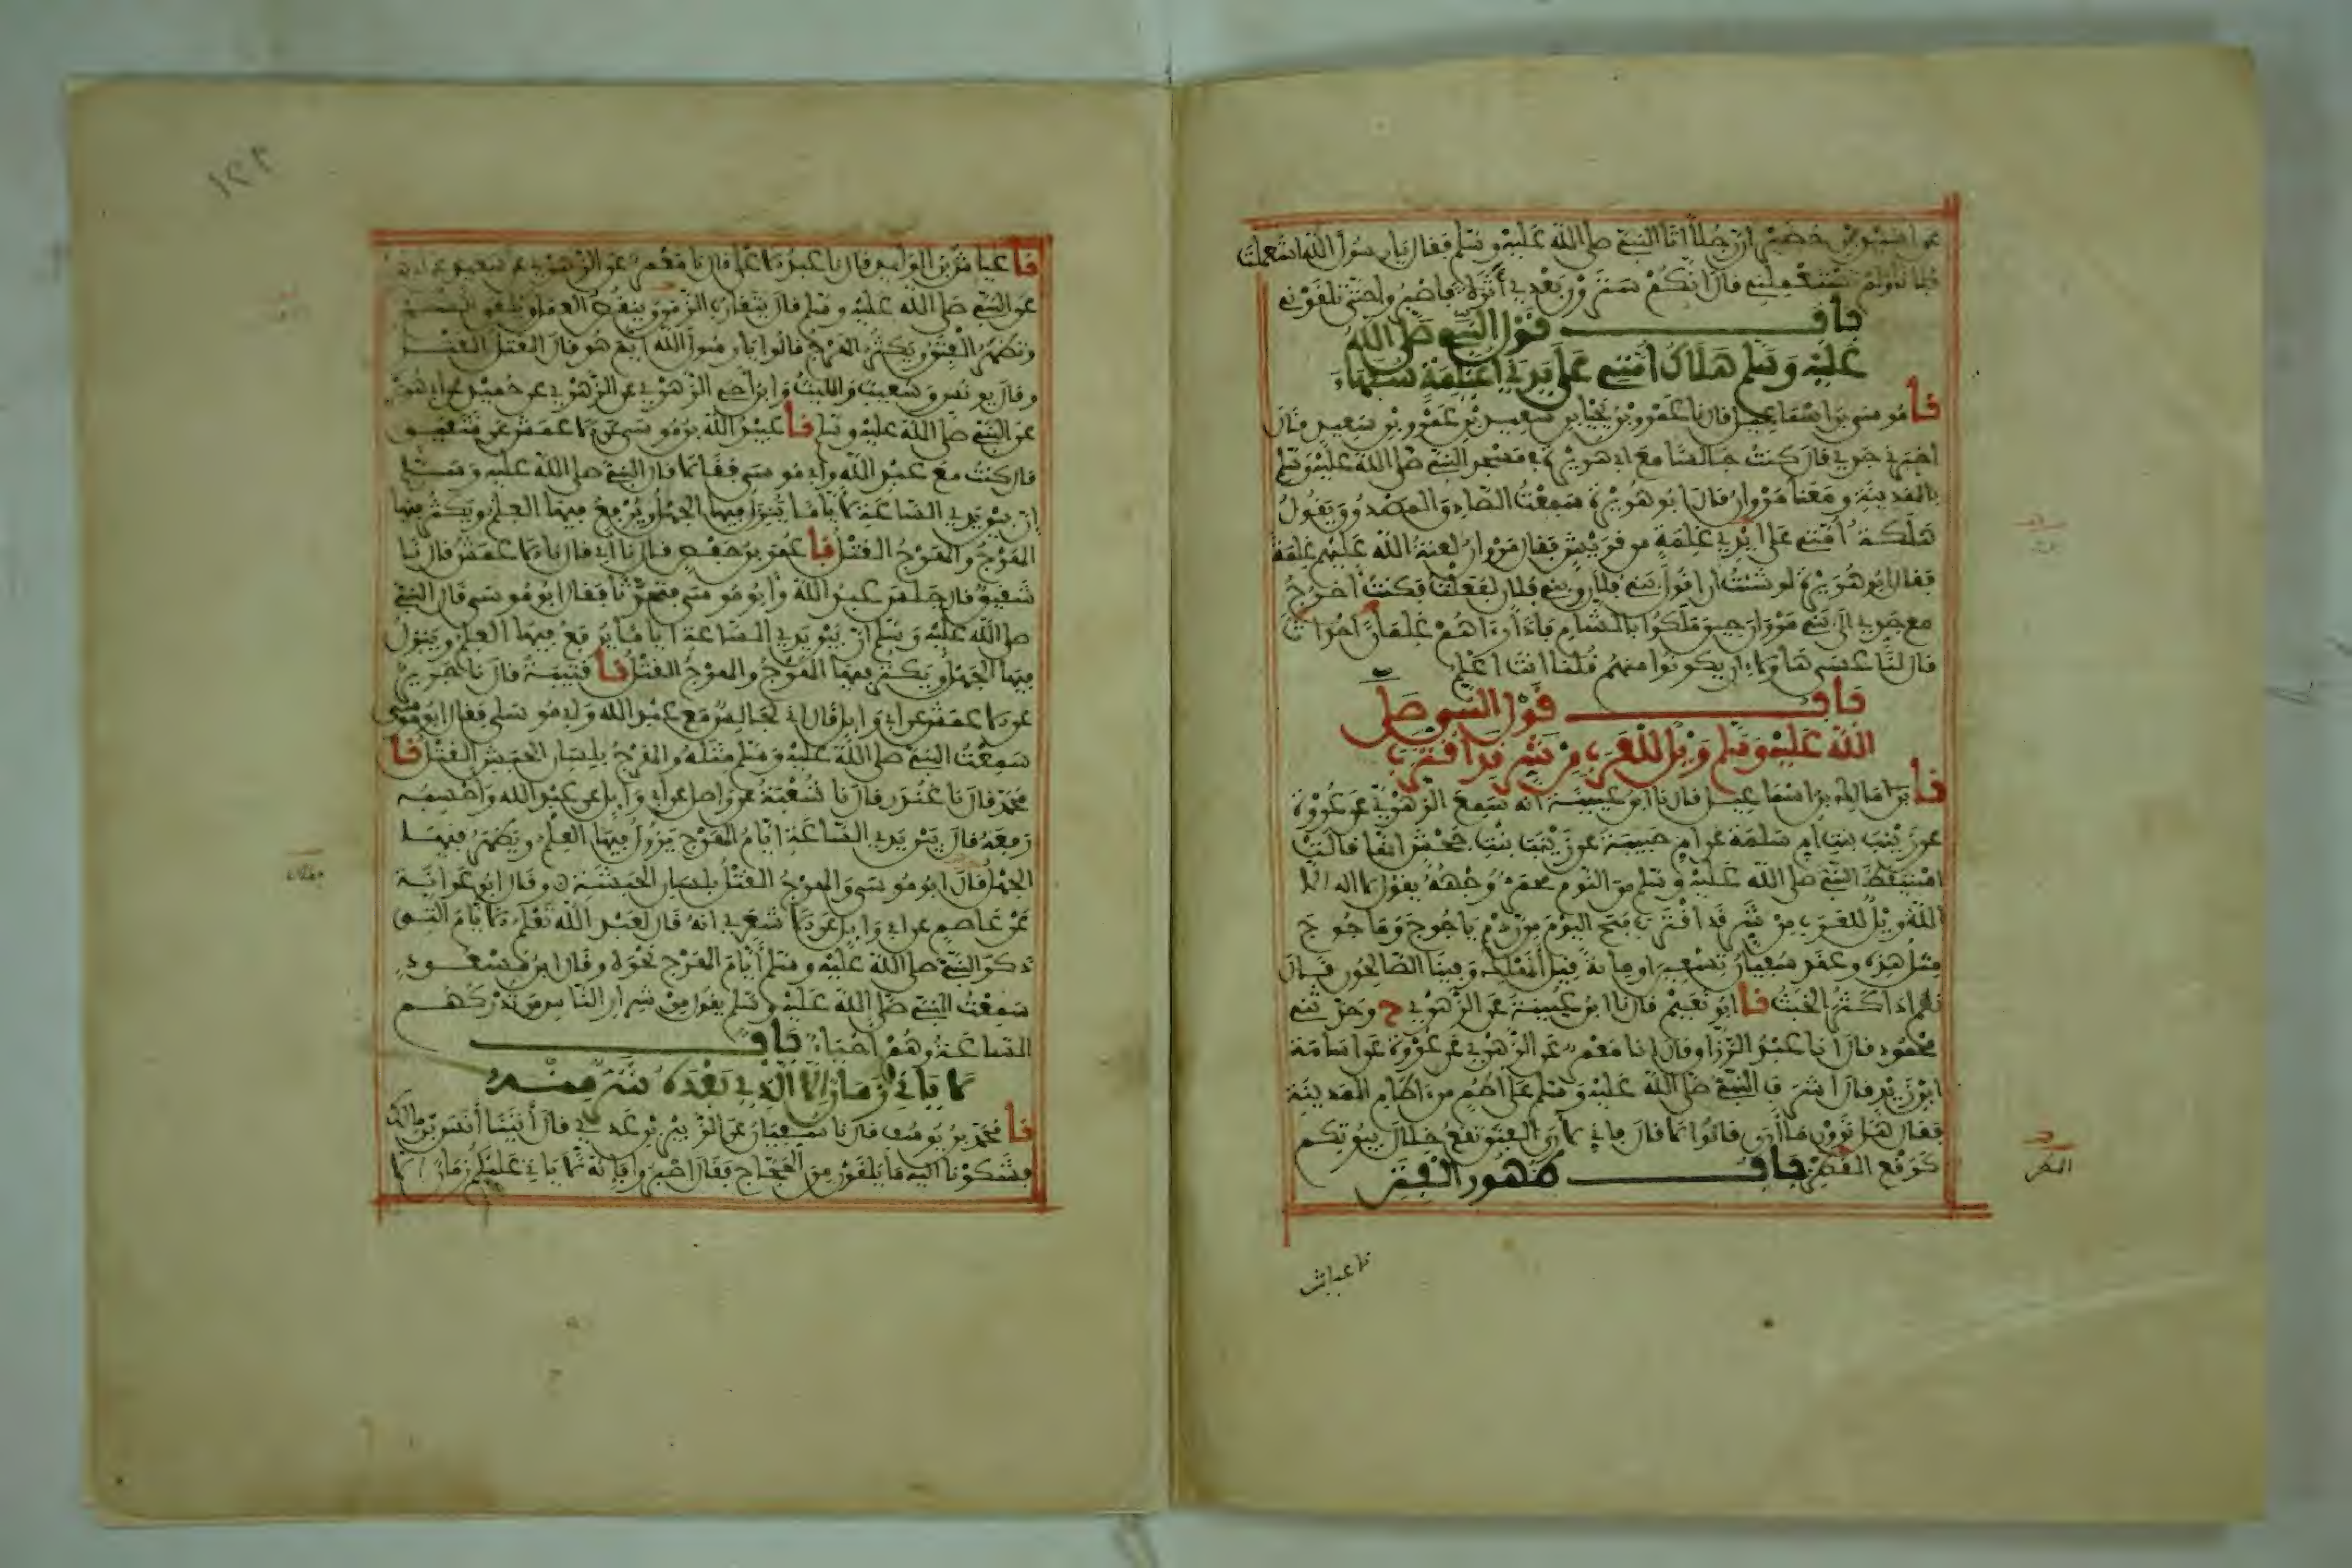 عن أسيد بن حضير أن رجلا أتا النبي صلى الله عليه وسلم فقال يا رسول الله استعملت
فلانا ولم تستعملني قال إنكم سترون بعدي أثرة فاصبروا حتى تلقوني
باب قول النبي صلى الله
عليه وسلم هلاك أمتي على يدي أغيلمة سفهاء
نا موسى بن إسماعيل قال نا عمرو بن يحيى بن سعيد بن عمرو بن سعيد قال
أخبرني جدي قال كنت جالسا مع أبي هريرة في مسجد النبي صلى الله عليه وسلم
بالمدينة ومعنا مروان قال أبو هريرة سمعت الصادق المصدوق يقول
هلكة أمتي على أيدي غلمة من قريش فقال مروان لعنة الله عليهم غلمة
فقال أبو هريرة لو شئت أن أقول بني فلان وبني فلان لفعلت فكنت أخرج
مع جدي إلى بني مروان حين ملكوا بالشام فإذا رءاهم غلمانا أحداثا
قال لنا عسى هاولاء أن يكونوا منهم قلنا أنت أعلم
باب قول النبي صلى
الله عليه وسلم ويل للعرب من شر قد اقترب
نا مالك بن إسماعيل قال نا ابن عيينة أنه سمع الزهري عن عروة
عن زينب بنت أم سلمة عن أم حبيبة عن زينب بنت جحش أنها قالت
استيقظ النبي صلى الله عليه وسلم من النوم محمر وجهه يقول لا اله إلا
الله ويل للعرب من شر قد اقترب فتح اليوم من ردم ياجوج وماجوج
مثل هذه وعقد سفيان تسعين أو مائة قيل أنهلك وفينا الصالحون قال
نعم إذا كثر الخبث نا أبو نعيم قال نا ابن عيينة عن الزهري ح وحدثني
محمود قال أنا عبد الرزاق قال أنا معمر عن الزهري عن عروة عن أسامة
ابن زيد قال أشرف النبي صلى الله عليه وسلم على أطم من ءاطام المدينة
فقال هل ترون ما أرى قالوا لا قال فإني لأرى الفتن تقع خلال بيوتكم
كوقع القطر باب ظهور الفتن
نا عياش
نا عياش بن الوليد قال نا عبد الأعلى قال نا معمر عن الزهري عن سعيد عن أبي هريرة
عن النبي صلى الله عليه وسلم قال يتقارب الزمن وينقص العمل ويلقى الشح
وتظهر الفتن ويكثر الهرج قالوا يا رسول الله أيم هو قال القتل القتل
وقال يونس وشعيب والليث وابن أخي الزهري عن الزهري عن حميد عن أبي هريرة
عن النبي صلى الله عليه وسلم نا عبيد الله بن موسى عن الأعمش عن شقيق
قال كنت مع عبد الله وأبي موسى فقالا قال النبي صلى الله عليه وسلم
إن بين يدي الساعة لأياما ينزل فيها الجهل ويرفع فيها العلم ويكثر فيها
الهرج والهرج القتل نا عمر بن حفص قال نا أبي قال نا الأعمش قال نا
شقيق قال جلس عبد الله وأبو موسى فتحدثا فقال أبو موسى قال النبي
صلى الله عليه وسلم إن بين يدي الساعة أياما يرفع فيها العلم وينزل
فيها الجهل ويكثر فيها الهرج والهرج القتل نا قتيبة قال نا جرير
عن الأعمش عن أبي وائل قال إني لجالس مع عبد الله وأبي موسى فقال أبو موسى
سمعت النبي صلى الله عليه وسلم مثله والهرج بلسان الحبش القتل نا
محمد قال نا غندر قال نا شعبة عن واصل عن أبي وائل عن عبد الله وأحسبه
رفعه قال بين يدي الساعة أيام الهرج يزول فيها العلم ويظهر فيها
الجهل قال أبو موسى والهرج القتل بلسان الحبشة وقال أبو عوانة
عن عاصم عن أبي وائل عن الأشعري أنه قال لعبد الله تعلم الأيام التي
ذكر النبي صلى الله عليه وسلم أيام الهرج نحوه وقال ابن مسعود
سمعت النبي صلى الله عليه وسلم يقول من شرار الناس من تدركهم
الساعة وهم أحياء باب
لا ياتي زمان إلا الذي بعده شر منه
نا محمد بن يوسف قال نا سفيان عن الزبير بن عدي قال أتينا أنس بن مالك
فشكونا إليه ما يلقون من الحجاج فقال اصبروا فإنه لا ياتي عليكم زمان إلا